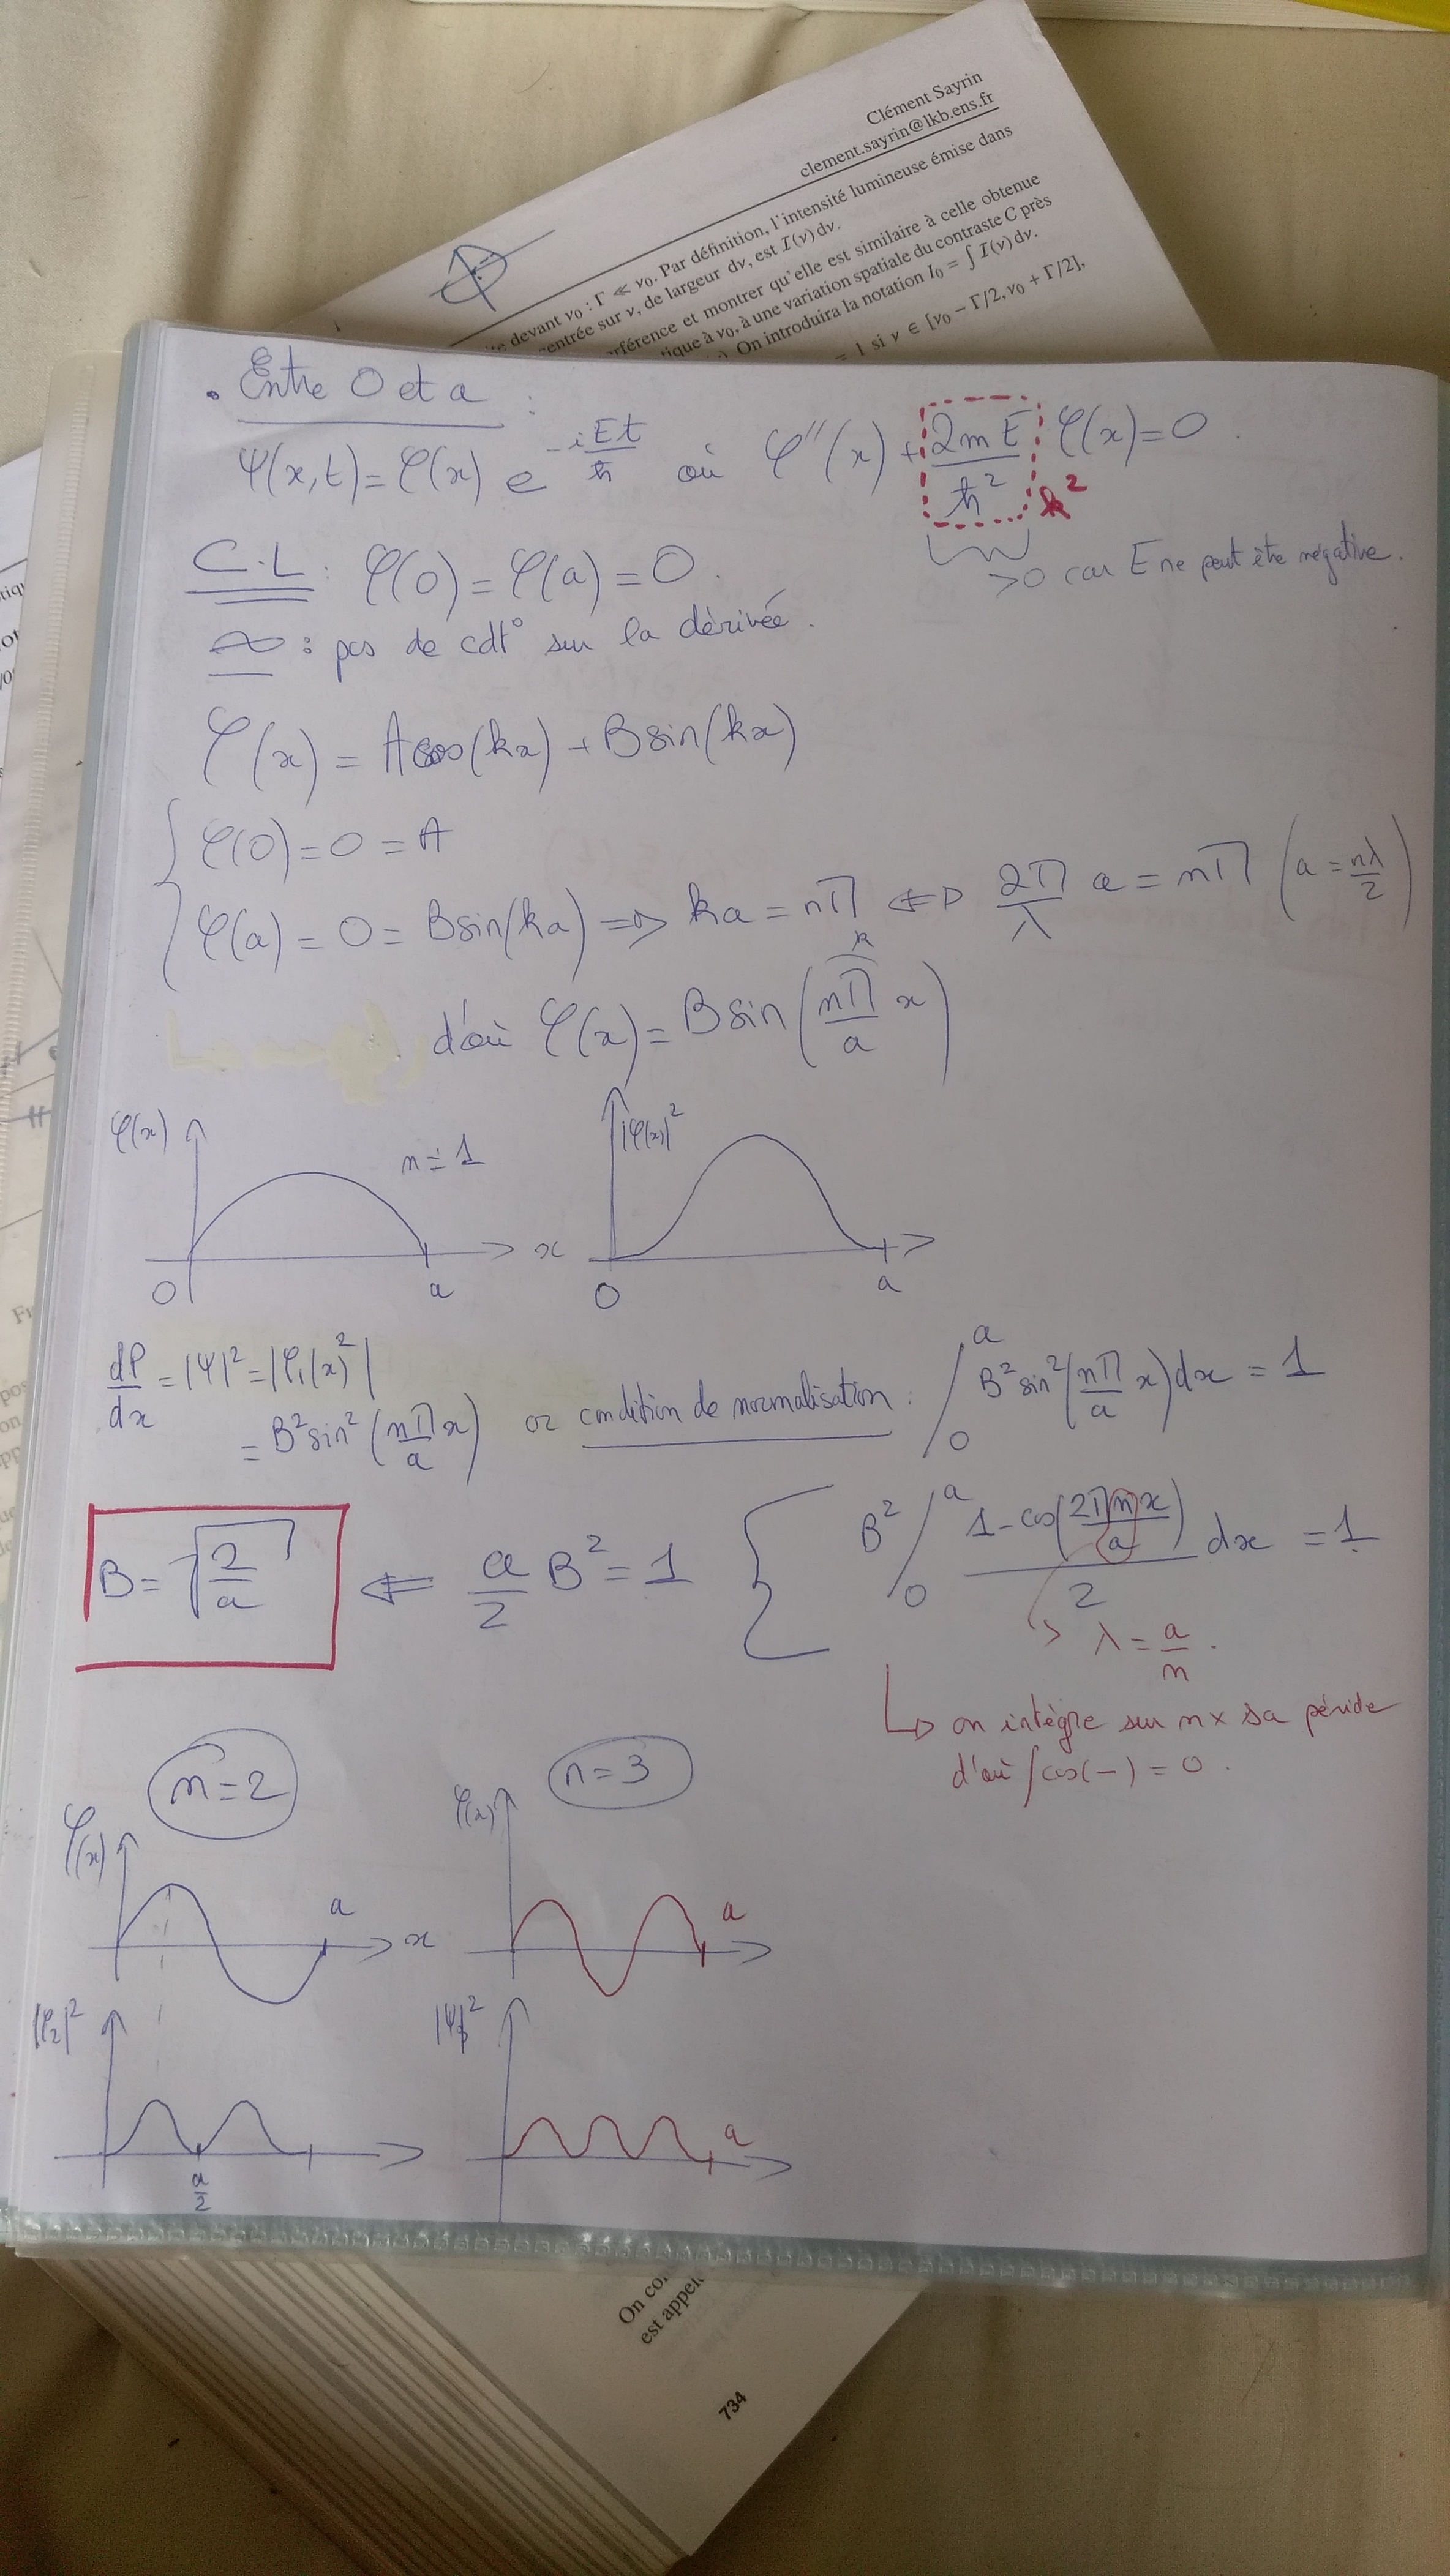 Clément Sayrin
clement.sayrin@lkb.ens.fr
devant ν₀ : Γ ≪ ν₀. Par définition, l'intensité lumineuse émise dans
entrée sur ν, de largeur dν, est I(ν) dν.
férence et montrer qu'elle est similaire à celle obtenue
tique à ν₀, à une variation spatiale du contraste C près
On introduira la notation I₀ = ∫ I(ν) dν.
= 1 si ν ∈ [ν₀ − Γ/2, ν₀ + Γ/2],
• Entre 0 et a :
Ψ(x,t) = φ(x) e^(-iEt/ħ) où φ''(x) + 2mE/ħ² φ(x) = 0.
k²
>0 car E ne peut être négative.
C.L : φ(0) = φ(a) = 0.
: pas de cdt° sur la dérivée.
φ(x) = A cos(kx) + B sin(kx)
φ(0) = 0 = A
φ(a) = 0 = B sin(ka) => ka = nπ <=> 2π/λ a = nπ (a = nλ/2)
k
d'où φ(x) = B sin(nπ/a x)
φ(x) n=1 |φ(x)|²
x
0 a 0 a
dP/dx = |Ψ|² = |φ₁(x)²|
= B² sin²(nπ/a x) or condition de normalisation : ∫₀ᵃ B² sin²(nπ/a x) dx = 1
B = √(2/a) <= a/2 B² = 1 { B² ∫₀ᵃ (1 - cos(2πnx/a))/2 dx = 1
> λ = a/n.
↳ on intègre sur n × sa période
d'où ∫cos(-) = 0.
n=2 n=3
φ(x) a x
φ(x) a
|φ₂|² a/2
|Ψ₃|² a
On co
est appel
734